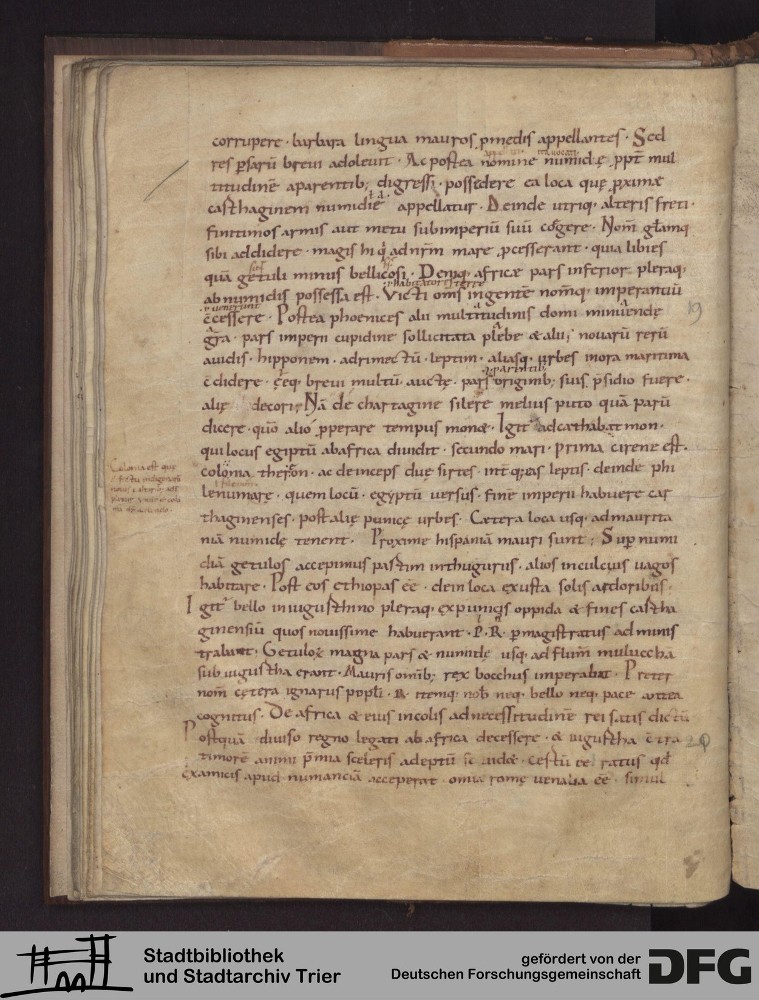 corrupere · barbara lingua mauros p medis appellantes · Sed
res psarū breui adoleuit · Ac postea nomine numidę ppt mul
titudinē aparentib; digressi · possedere ea loca quę pximæ
casthaginem numidię appellatur · Deinde utriq· alteris freti ·
finitimos armis aut metu sub imperiū suū cogere · Nom̄ gl̄amq
sibi addidere · magis hi q̇ ad nrm̄ mare pcesserant · quia libies
quā getuli minus bellicosi · Deniq· africæ pars inferior pleraq·
ab numidis possessa est · Victi om̄s in gentē nom̄q· imperantiū
c̄cessere · Postea phoenices alii multitudinis domi minuendę
gr̄a · pars imperii cupidine sollicitata plebe & aliis nouarū rerū
auidis · hipponem · adrimectū · leptim · aliasq· urbes in ora maritima
c̄didere · ęeq· breui multū auctę · pars originib; suis p̄sidio fuere ·
alię decori; Nā de chartagine silere melius puto quā parū
dicere · quō alio pperare tempus monæ · Igit ad cathabatmon ·
qui locus egiptū ab africa diuidit · secundo mari · prima cirene est ·
colonia theron · ac deinceps duę sirtes · int q̄as leptis · deinde phi
lenum arę · quem locū · egyptū uersus · finē imperii habuere car
thaginenses · post alię punicę urbes · Cætera loca usq· ad maurita
niā numidę tenent · Proxime hispaniā mauri sunt ; Sup numi
diā getulos accepimus partim in thugurus · alios incultius uagos
habitare · Post eos ethiopas ēē · dein loca exusta solis ardoribus ·
Igit bello iniugusthino pleraq· ex punicis oppida & fines castha
ginensiū quos nouissime habuerant · P · R · p magistratus ad minis
trabant · Getulorū magna pars & numidę usq· ad flum̄ muluccha
sub iugustha erant · Mauris omīb; rex bocchus imperabat · Preter
nom̄ cętera ignarus popli · R · itemq· nob̄ neq· bello neq· pace antea
cognitus · De africa & eius incolis ad necessitudinē rei satis dictū
Postquā diuiso regno legati ab africa decessere · & iugustha c̄tra
timorē animi p̄mia sceleris adeptū
ex amicis apud numanciā acceperat · omia romę uenalia ēē · simul
19
20
Colonia est quę
Stadtbibliothek
und Stadtarchiv Trier
gefördert von der
Deutschen Forschungsgemeinschaft
DFG